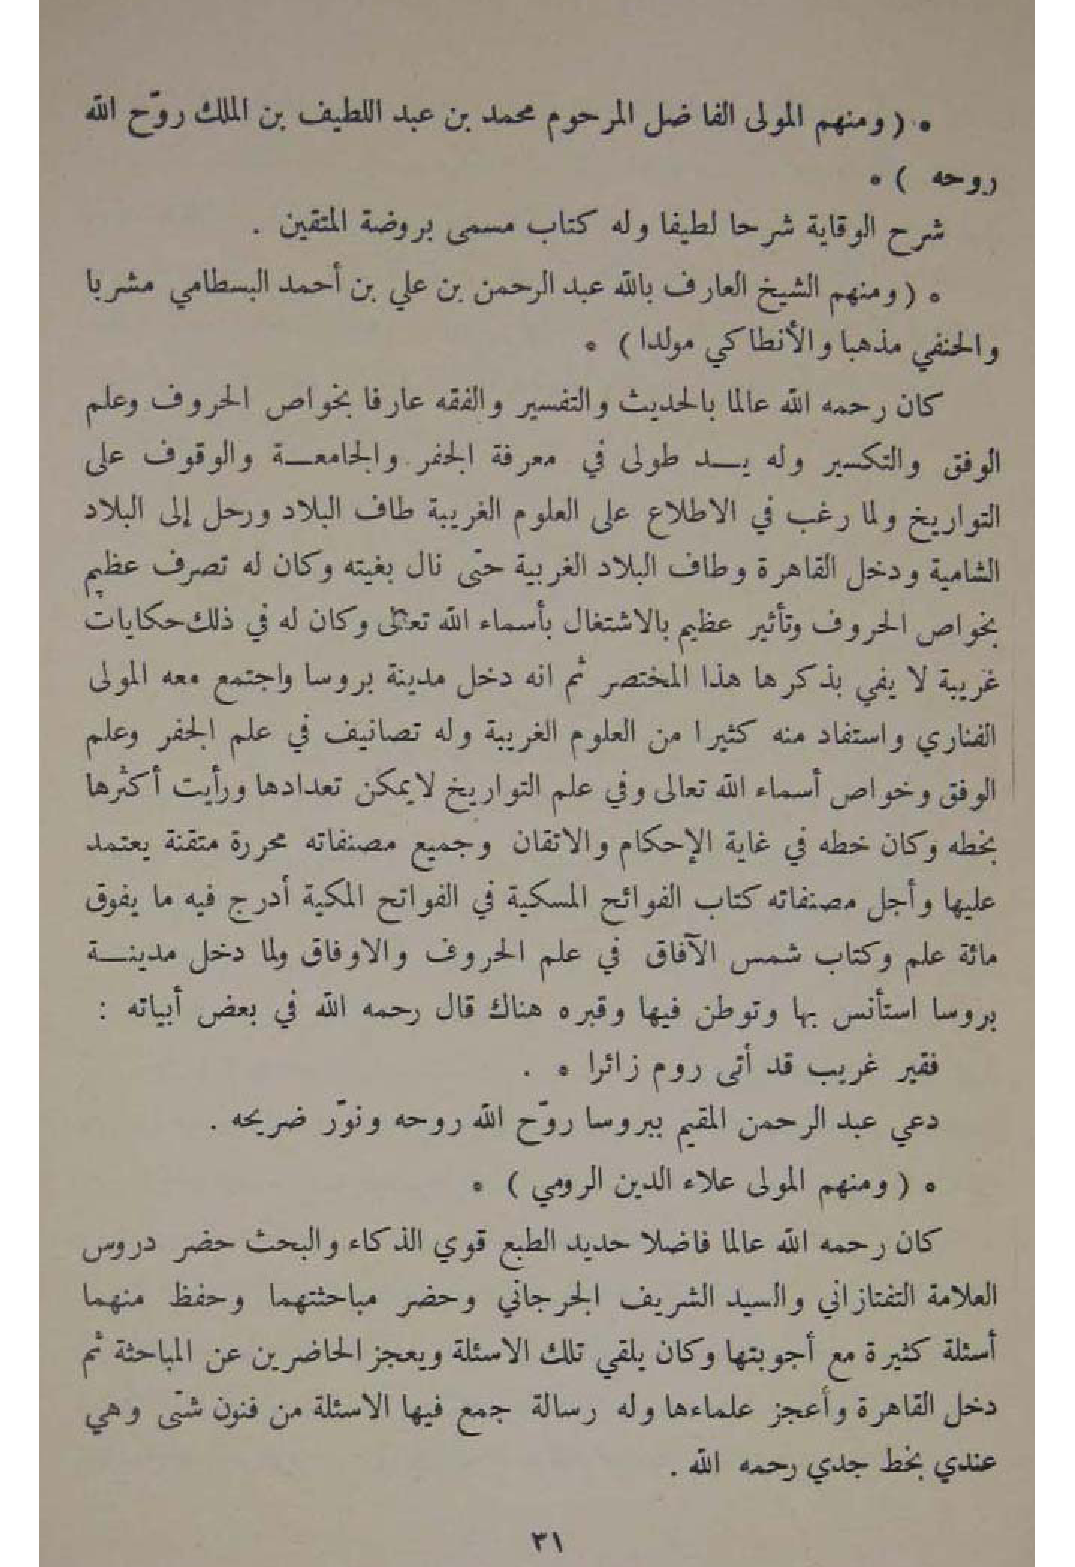 • ( ومنهم المولى الفاضل المرحوم محمد بن عبد اللطيف بن الملك روّح الله
روحه ) •
شرح الوقاية شرحا لطيفا وله كتاب مسمى بروضة المتقين .
• ( ومنهم الشيخ العارف بالله عبد الرحمن بن علي بن أحمد البسطامي مشربا
والحنفي مذهبا والأنطاكي مولدا ) •
كان رحمه الله عالما بالحديث والتفسير والفقه عارفا بخواص الحروف وعلم
الوفق والتكسير وله يــد طولى في معرفة الجفر والجامعــة والوقوف على
التواريخ ولما رغب في الاطلاع على العلوم الغريبة طاف البلاد ورحل إلى البلاد
الشامية ودخل القاهرة وطاف البلاد الغربية حتّى نال بغيته وكان له تصرف عظيم
بخواص الحروف وتأثير عظيم بالاشتغال بأسماء الله تعالى وكان له في ذلك حكايات
غريبة لا يفي بذكرها هذا المختصر ثم انه دخل مدينة بروسا واجتمع معه المولى
الفناري واستفاد منه كثيرا من العلوم الغريبة وله تصانيف في علم الجفر وعلم
الوفق وخواص أسماء الله تعالى وفي علم التواريخ لايمكن تعدادها ورأيت أكثرها
بخطه وكان خطه في غاية الإحكام والاتقان وجميع مصنفاته محررة متقنة يعتمد
عليها وأجل مصنفاته كتاب الفوائح المسكية في الفواتح المكية أدرج فيه ما يفوق
مائة علم وكتاب شمس الآفاق في علم الحروف والاوفاق ولما دخل مدينــة
بروسا استأنس بها وتوطن فيها وقبره هناك قال رحمه الله في بعض أبياته :
فقير غريب قد أتى روم زائرا • .
دعي عبد الرحمن المقيم ببروسا روّح الله روحه ونوّر ضريحه .
• ( ومنهم المولى علاء الدين الرومي ) •
كان رحمه الله عالما فاضلا حديد الطبع قوي الذكاء والبحث حضر دروس
العلامة التفتازاني والسيد الشريف الجرجاني وحضر مباحثتهما وحفظ منهما
أسئلة كثيرة مع أجوبتها وكان يلقي تلك الاسئلة ويعجز الحاضرين عن المباحثة ثم
دخل القاهرة وأعجز علماءها وله رسالة جمع فيها الاسئلة من فنون شتّى وهي
عندي بخط جدي رحمه الله .
٣١